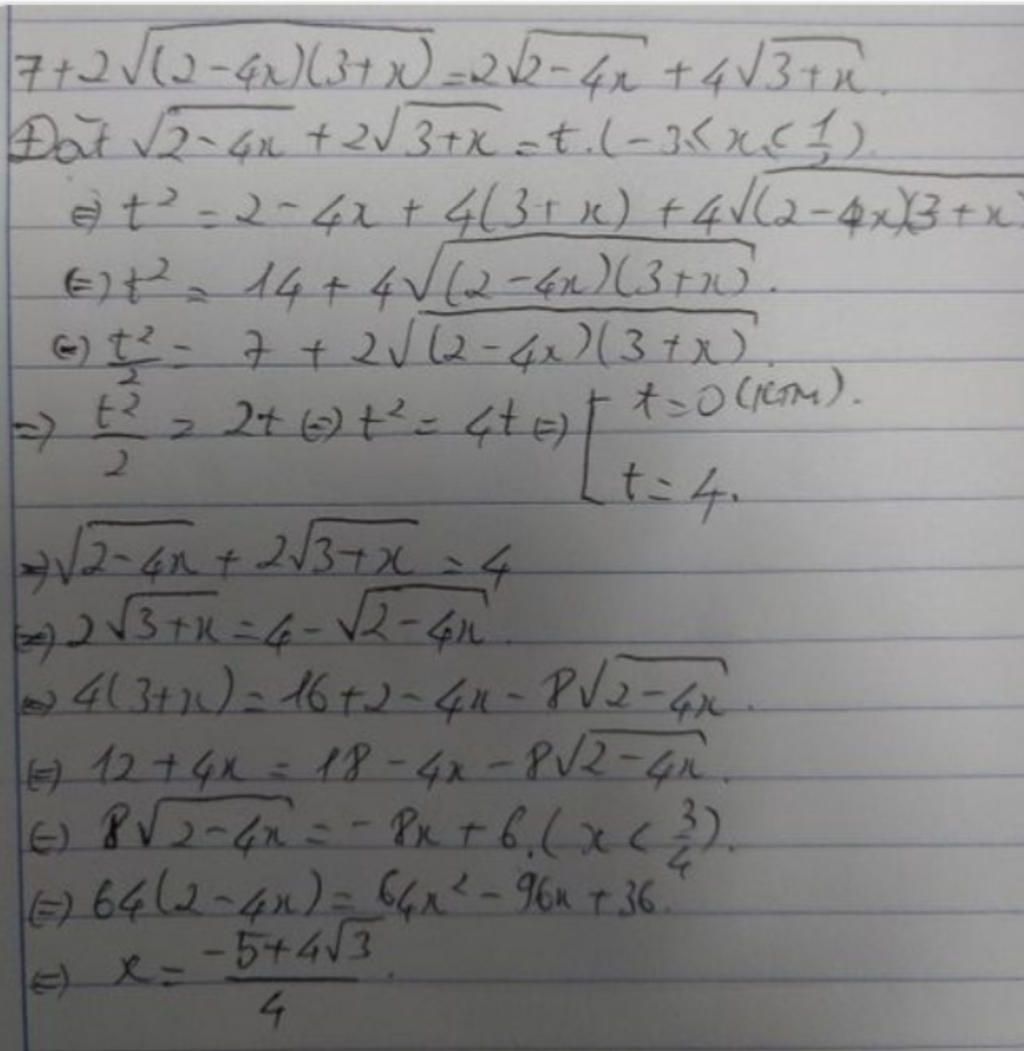 7 + 2√((2-4x)(3+x)) = 2√(2-4x) + 4√(3+x).
Đặt √(2-4x) + 2√(3+x) = t. (-3 ≤ x ≤ 1/2)
⇔ t² = 2 - 4x + 4(3+x) + 4√((2-4x)(3+x)
⇔ t² = 14 + 4√((2-4x)(3+x)).
⇔ t²/2 = 7 + 2√((2-4x)(3+x)).
⇒ t²/2 = 2t ⇔ t² = 4t ⇔ [ t = 0 (KTM).
t = 4.
⇒ √(2-4x) + 2√(3+x) = 4
⇔ 2√(3+x) = 4 - √(2-4x).
⇔ 4(3+x) = 16 + 2 - 4x - 8√(2-4x).
⇔ 12 + 4x = 18 - 4x - 8√(2-4x).
⇔ 8√(2-4x) = -8x + 6. (x < 3/4).
⇔ 64(2-4x) = 64x² - 96x + 36.
⇔ x = (-5+4√3)/4.